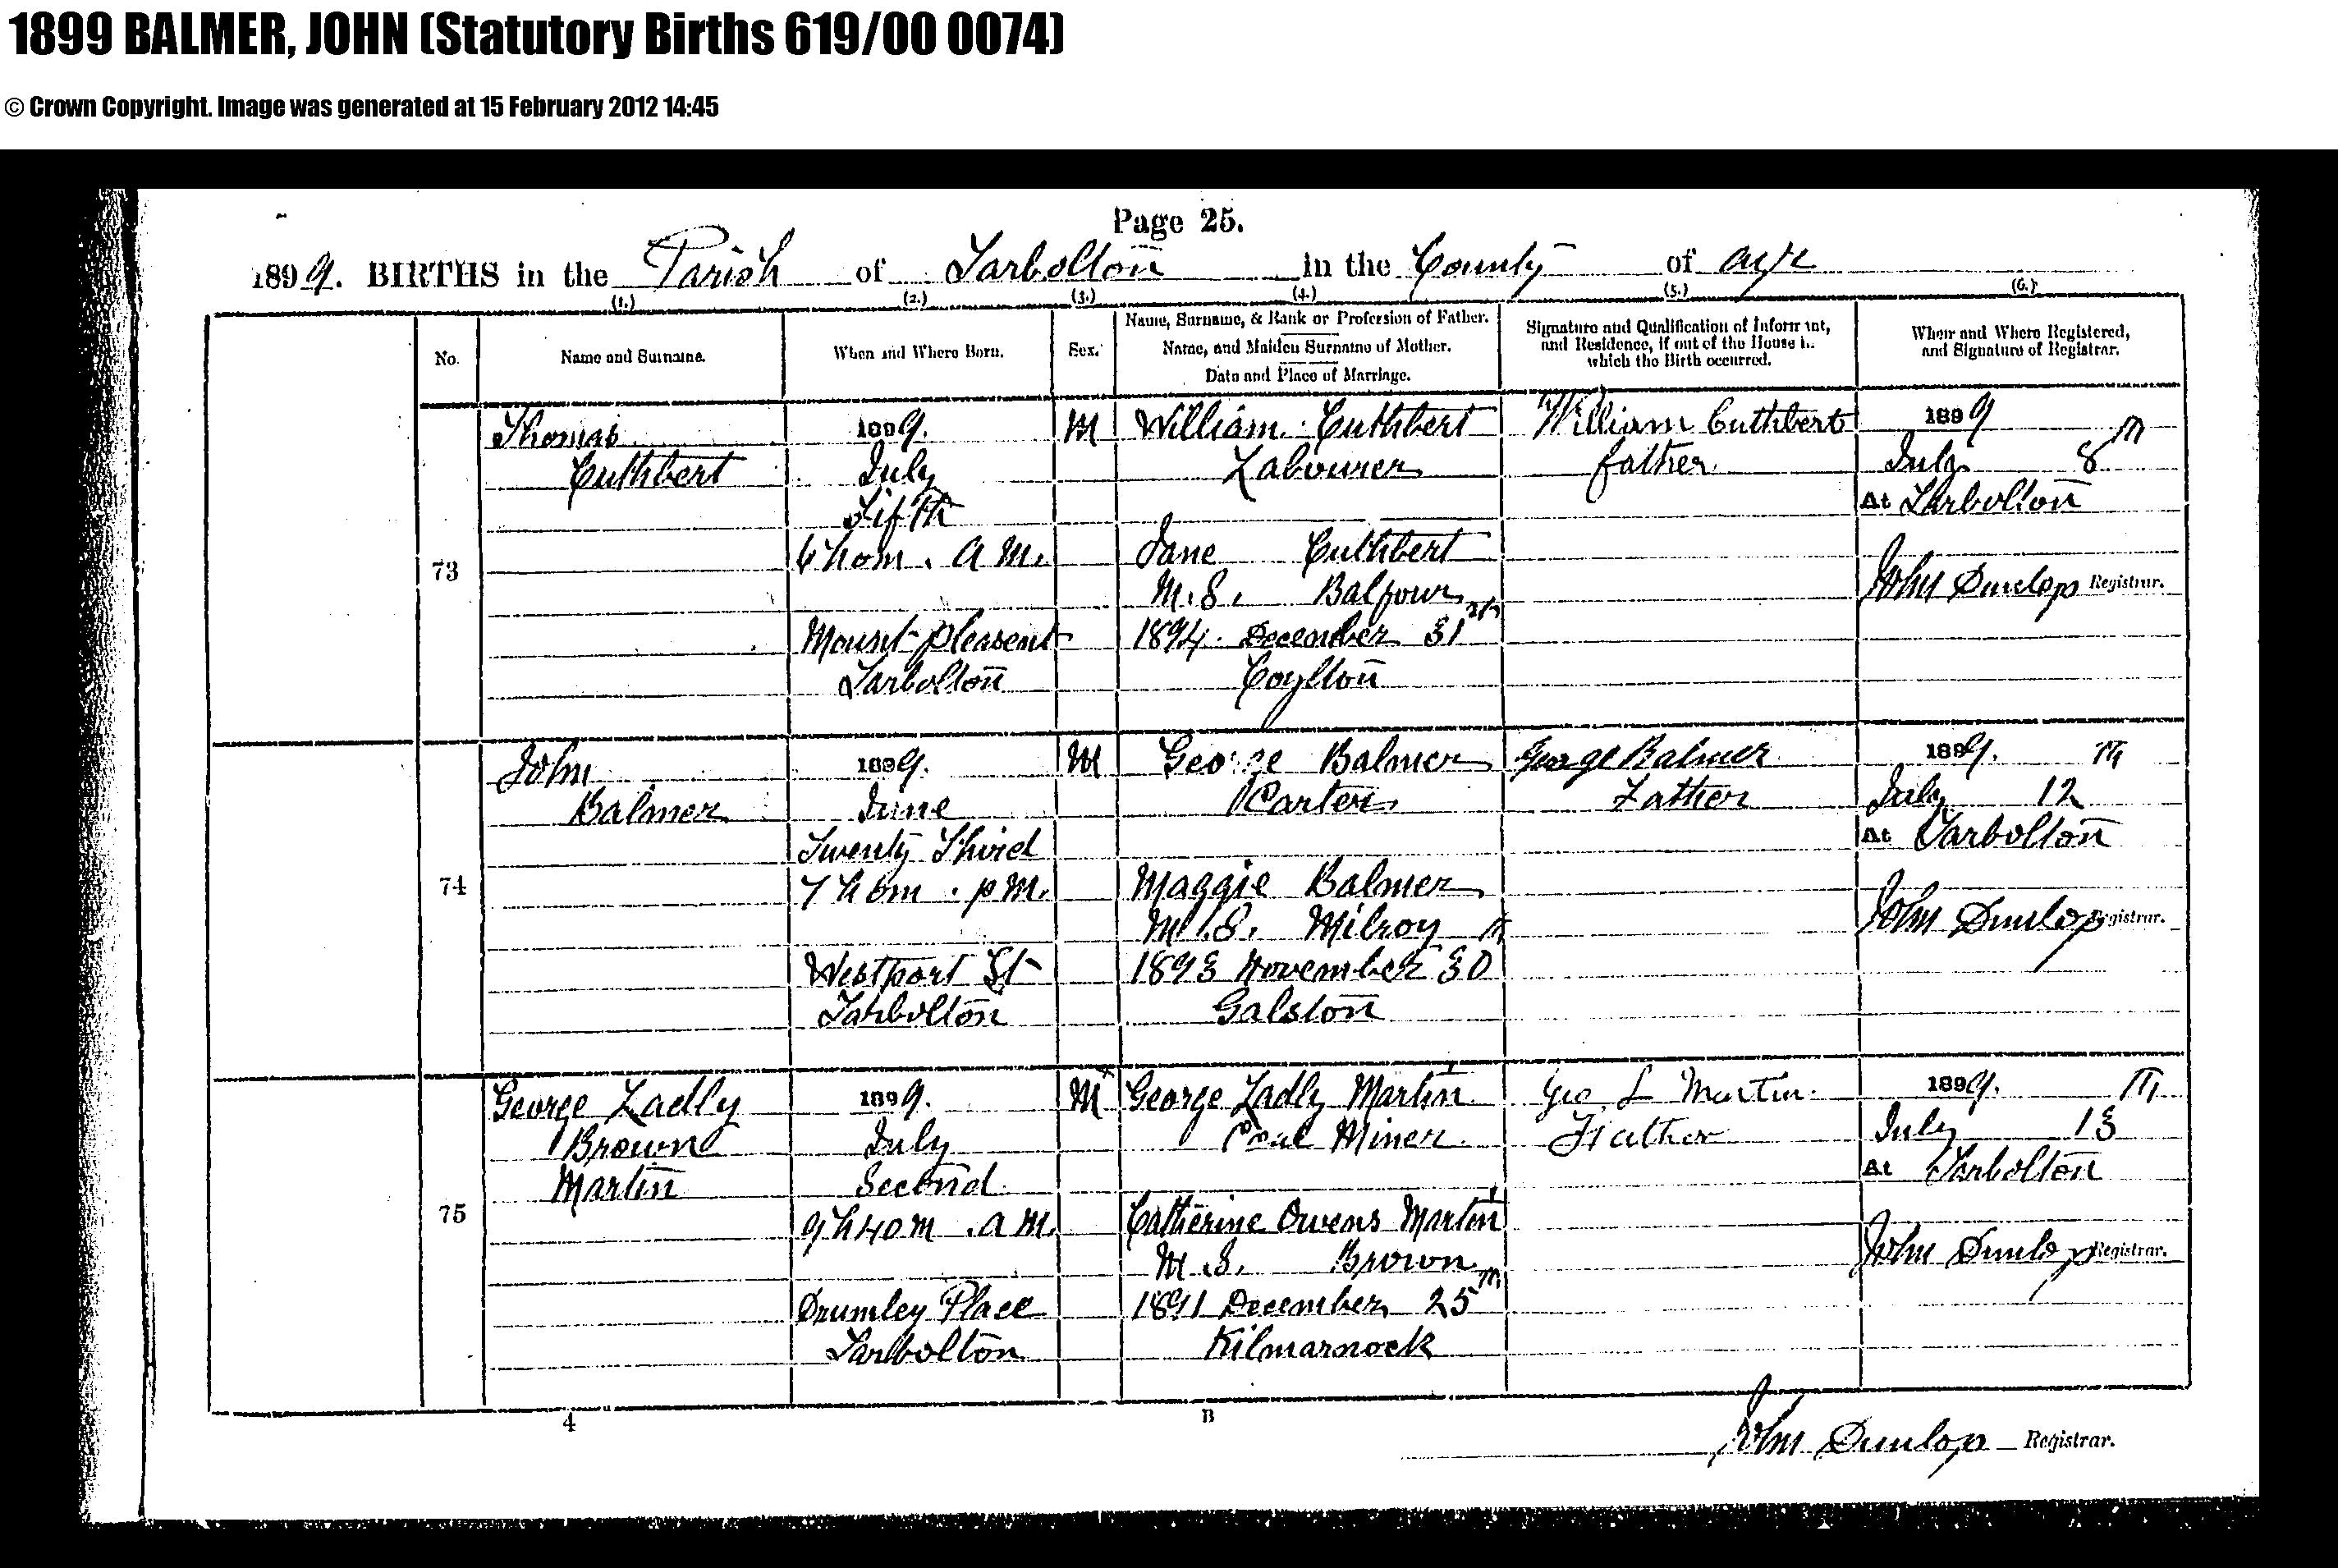 1899 BALMER, JOHN (Statutory Births 619/00 0074)
© Crown Copyright. Image was generated at 15 February 2012 14:45
Page 25.
1899. BIRTHS in the Parish of Tarbolton in the County of Ayr
(1.) (2.) (3.) (4.) (5.) (6.)
No.
Name and Surname.
When and Where Born.
Sex.
Name, Surname, & Rank or Profession of Father.
Name, and Maiden Surname of Mother.
Date and Place of Marriage.
Signature and Qualification of Informant,
and Residence, if out of the House in
which the Birth occurred.
When and Where Registered,
and Signature of Registrar.
73
Thomas
Cuthbert
1899.
July
Fifth
h 0 m. A M.
Mount pleasent
Tarbolton
M
William Cuthbert
Labourer
Jane Cuthbert
M.S. Balfour
1894. December 31st
Coylton
William Cuthbert
father
1899
July 8th
At Tarbolton
John Dunlop Registrar.
74
John
Balmer
1899.
June
Twenty Third
7 h 0 m. p M.
Westport St
Tarbolton
M
George Balmer
Carter
Maggie Balmer
M.S. Milroy
1893 November 30th
Galston
George Balmer
Father
1899. th
July 12
At Tarbolton
John Dunlop Registrar.
75
George Ladly
Brown
Martin
1899.
July
Second
9 h 40 m. a M.
Drumley Place
Tarbolton
M
George Ladly Martin
Coal Miner
Catherine Owens Martin
M.S. Brown
1891 December 25th
Kilmarnock
Geo. L Martin.
Father
1899. th
July 13
At Tarbolton
John Dunlop Registrar.
4
B
John Dunlop Registrar.